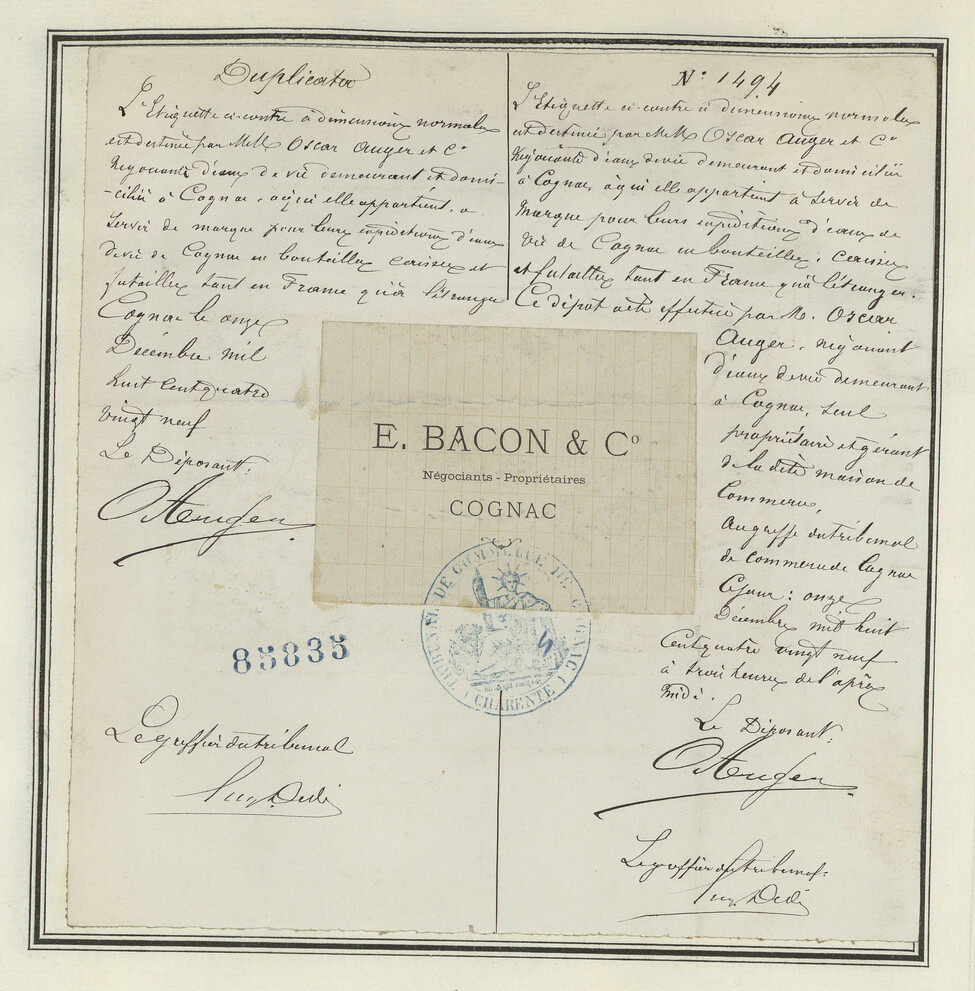 Duplicata
L'Etiquette ci-contre à dimensions normales
est destinée par M.M. Oscar Auger et Cº
Négociants d'eaux de vie demeurant et domi-
-ciliés à Cognac, à qui elle appartient, à
servir de marque pour leurs expéditions d'eaux
de vie de Cognac en bouteilles, caisses et
futailles tant en France qu'à l'étranger
Cognac le onze
Décembre mil
huit cent quatre
vingt neuf
Le Déposant:
OAuger
85835
Le greffier du tribunal
Nº 1494
L'Etiquette ci-contre à dimensions normales
est destinée par M.M. Oscar Auger et Cº
Négociants d'eaux de vie demeurant et domiciliés
à Cognac, à qui elle appartient à servir de
marque pour leurs expéditions d'eaux de
vie de Cognac en bouteilles, caisses
et futailles tant en France qu'à l'étranger.
Ce dépot a été effectué par M. Oscar
Auger, négociant
d'eaux de vie demeurant
à Cognac, seul
propriétaire et gérant
de la dite maison de
Commerce,
Au greffe du tribunal
de commerce de Cognac
Ce jour: onze
Décembre mil huit
Cent quatre vingt neuf
à trois heures de l'après
midi.
Le Déposant:
OAuger
Le greffier du tribunal:
E. BACON & Cº
Négociants - Propriétaires
COGNAC
TRIBUNAL DE COMMERCE DE COGNAC
(CHARENTE)